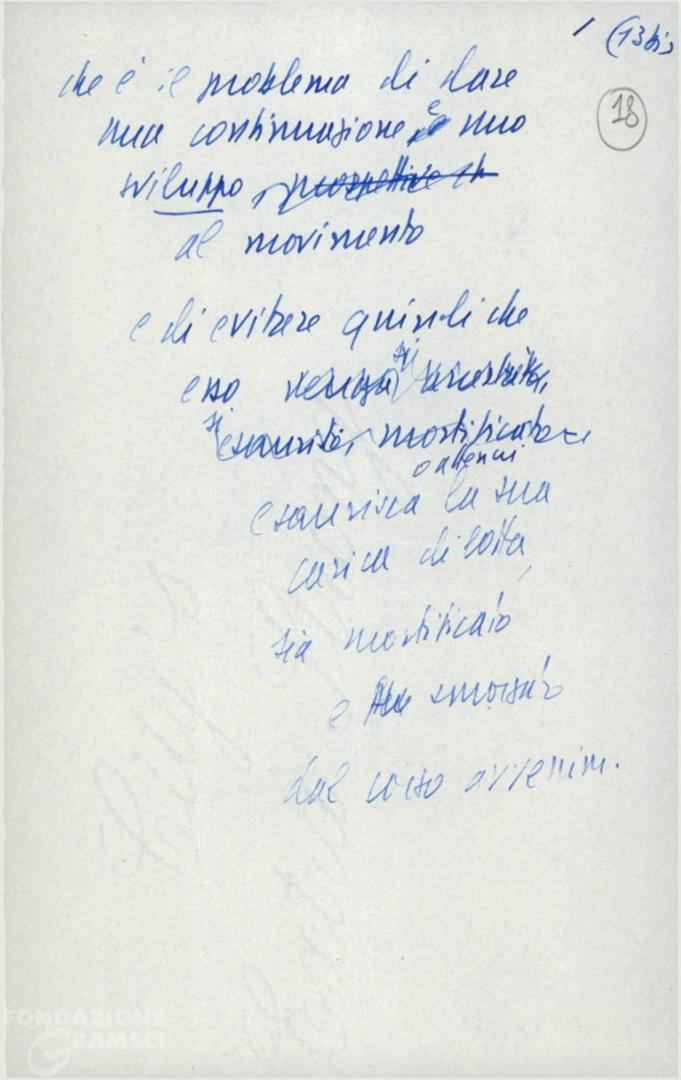 / (13 bis
18
che è il problema di dare
una continuazione e uno
sviluppo, prospettive in
al movimento
e di evitare quindi che
esso venga
si
si esaurito, mortificato e
o attenui
esaurisca la sua
carica di lotta,
sia mortificato
e smorzato
dal corso avvenim.
FONDAZIONE
GRAMSCI